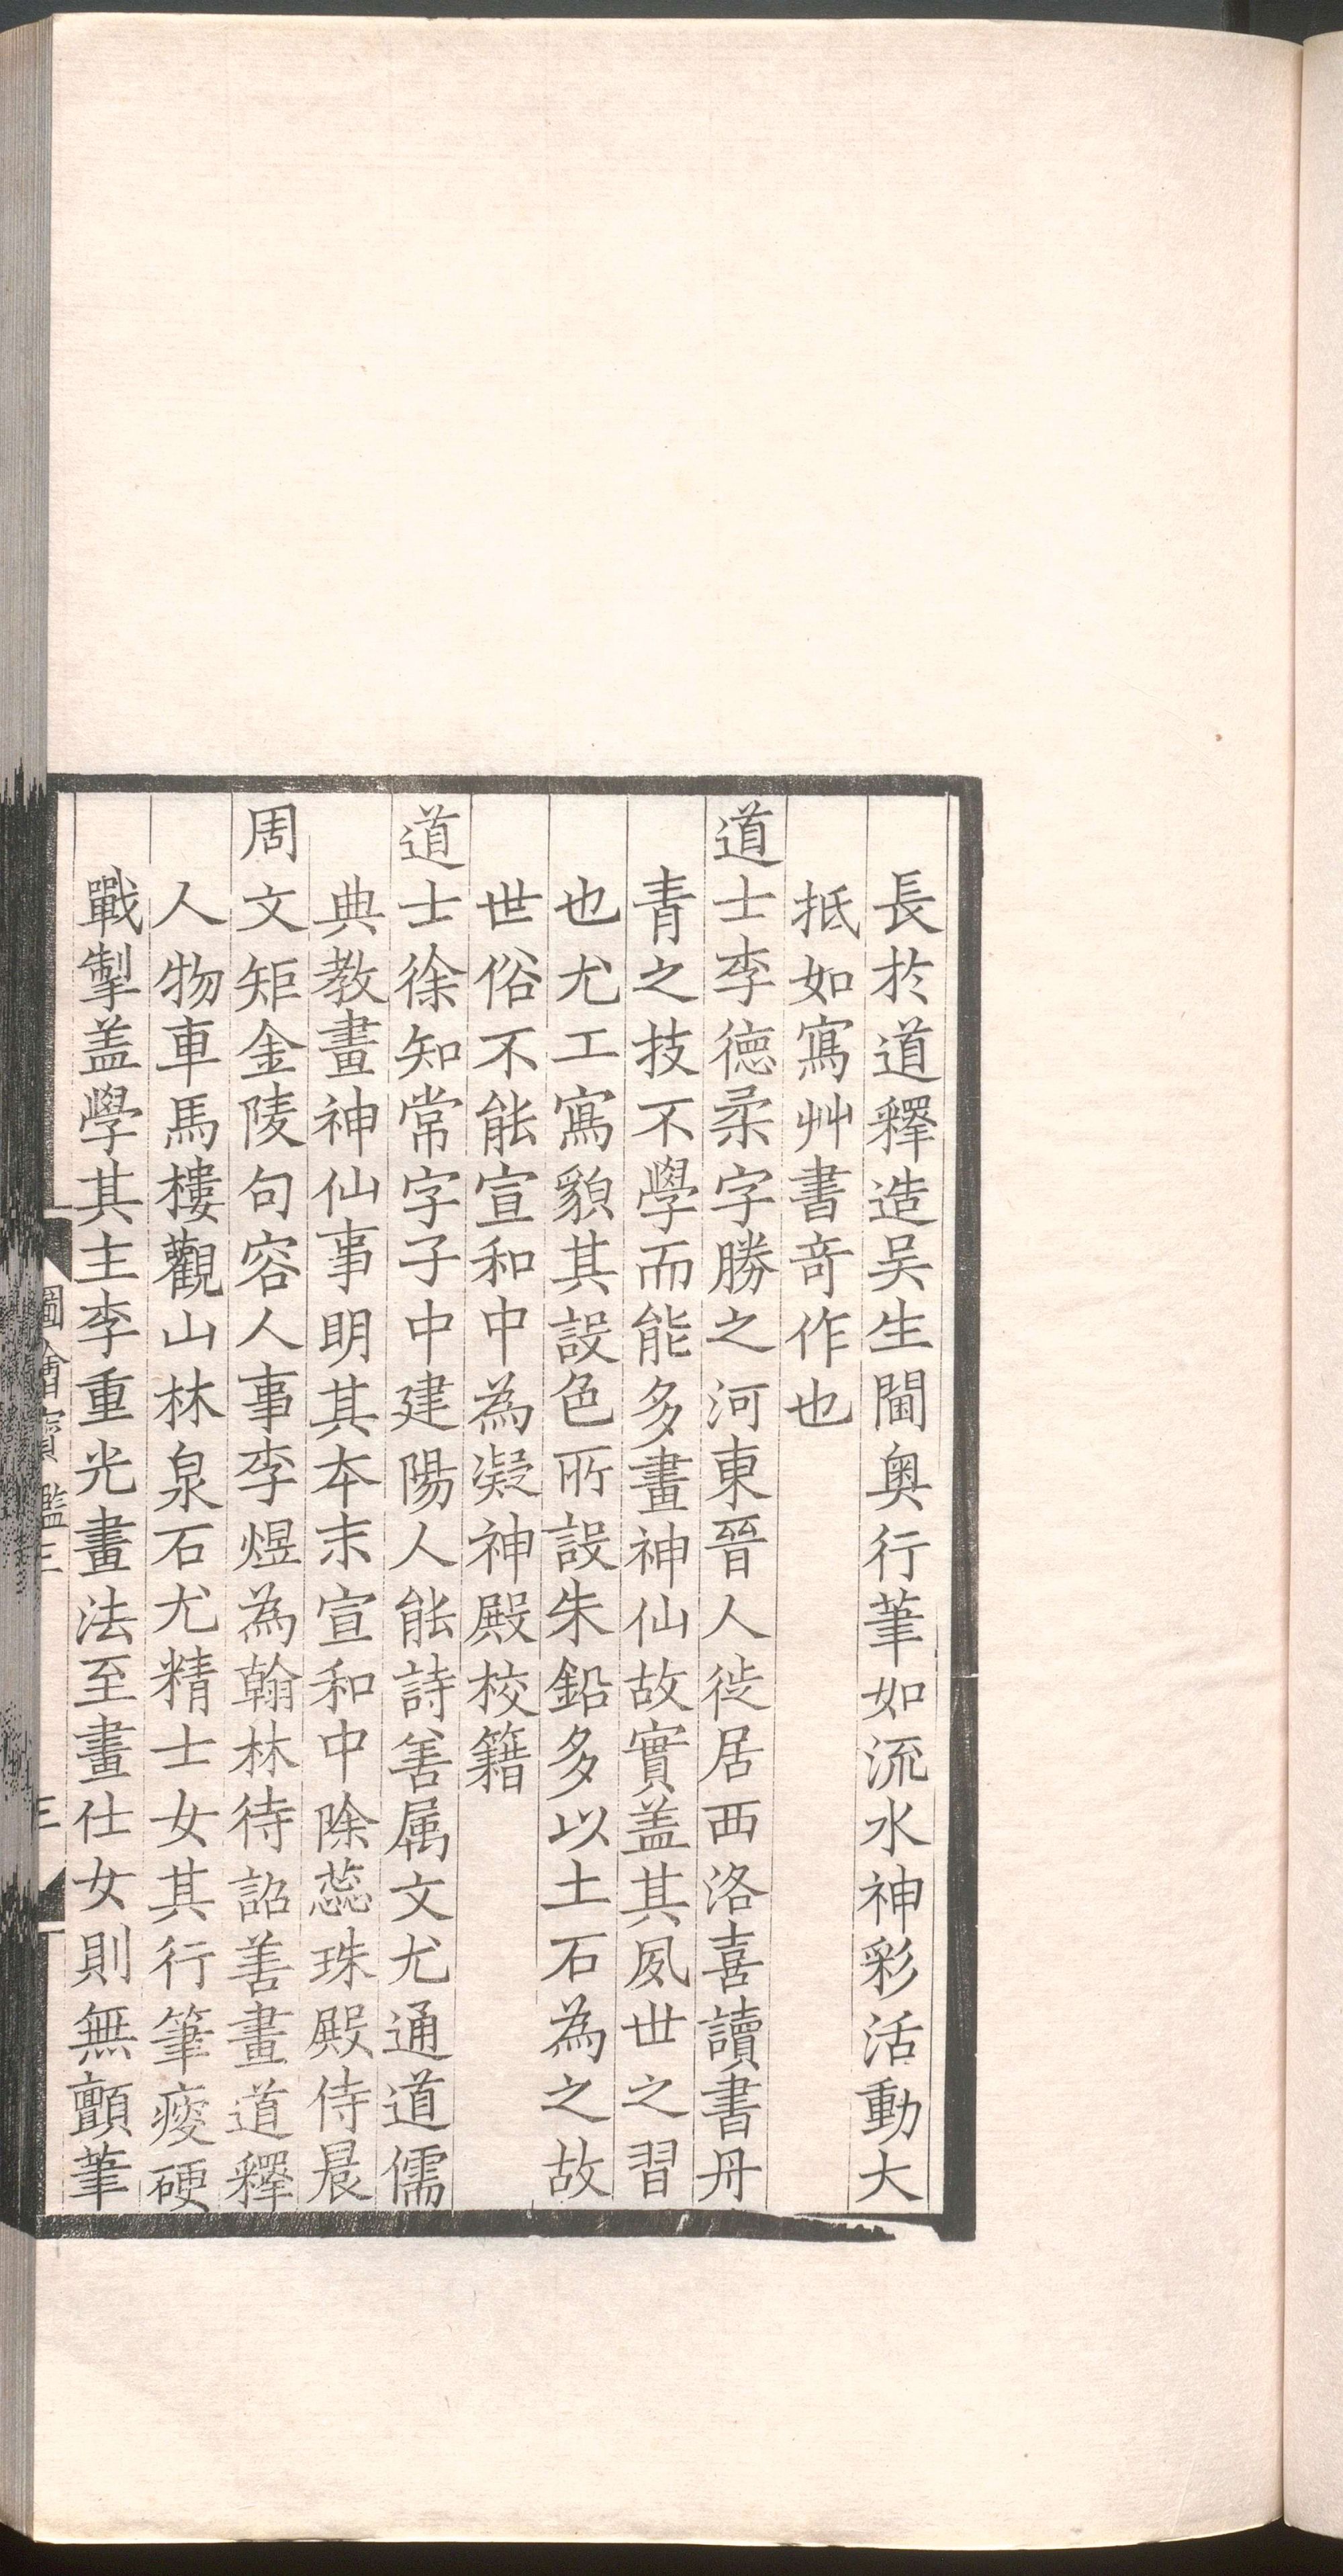 長於道釋造吴生閫奥行筆如流水神彩活動大
抵如寫艸書竒作也
道士李德柔字勝之河東晉人徙居西洛喜讀書丹
青之技不學而能多畫神仙故實盖其夙世之習
也尤工寫貌其設色所設朱鉛多以土石為之故
世俗不能宣和中為凝神殿校籍
道士徐知常字子中建陽人能詩善属文尤通道儒
典教畫神仙事明其本末宣和中除蕊珠殿侍晨
周文矩金陵句容人事李煜為翰林待詔善畫道釋
人物車馬樓觀山林泉石尤精士女其行筆瘦硬
戰掣盖學其主李重光畫法至畫仕女則無顫筆
圖繪寳鑑三
三